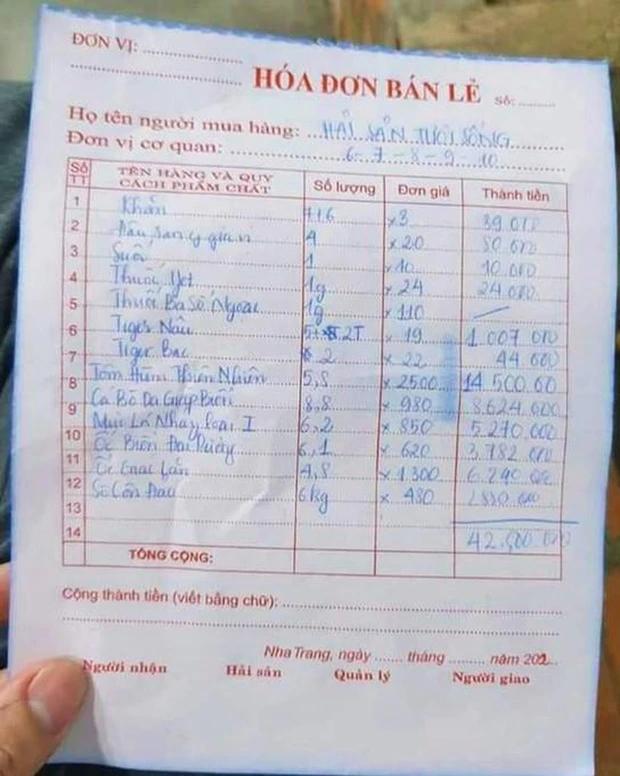 ĐƠN VỊ:
HÓA ĐƠN BÁN LẺ Số:
Họ tên người mua hàng: HẢI SẢN TƯƠI SỐNG
Đơn vị cơ quan: 6-7-8-9-10
Số TT TÊN HÀNG VÀ QUY CÁCH PHẨM CHẤT Số lượng Đơn giá Thành tiền
1 Khăn x3 39.000
2 4 x 20 80.000
3 Suối 1 x 10 10.000
4 Thuốc Jet 1g x 24 24.000
5 Thuốc Ba Số Ngoại 1g x 110
6 Tiger Nâu x 19 1.007.000
7 Tiger Bạc 2 x 22 44.000
8 Tôm Hùm Thiên Nhiên 5,8 x 2500 14.500.000
9 Cá Bò Da Giáp Biển 8,8 x 980 8.624.000
10 Mực Lá Nháy loại I 6,2 x 850 5.270.000
11 Ốc Biển Đại Dương 6,1 x 620 3.782.000
12 Ốc Gai Lớn 4,8 x 1.300 6.240.000
13 Sò Côn Đảo 6kg x 480 2.880.000
14
TỔNG CỘNG:
Cộng thành tiền (viết bằng chữ):
Nha Trang, ngày ........ tháng ......... năm 202...
Người nhận Hải sản Quản lý Người giao